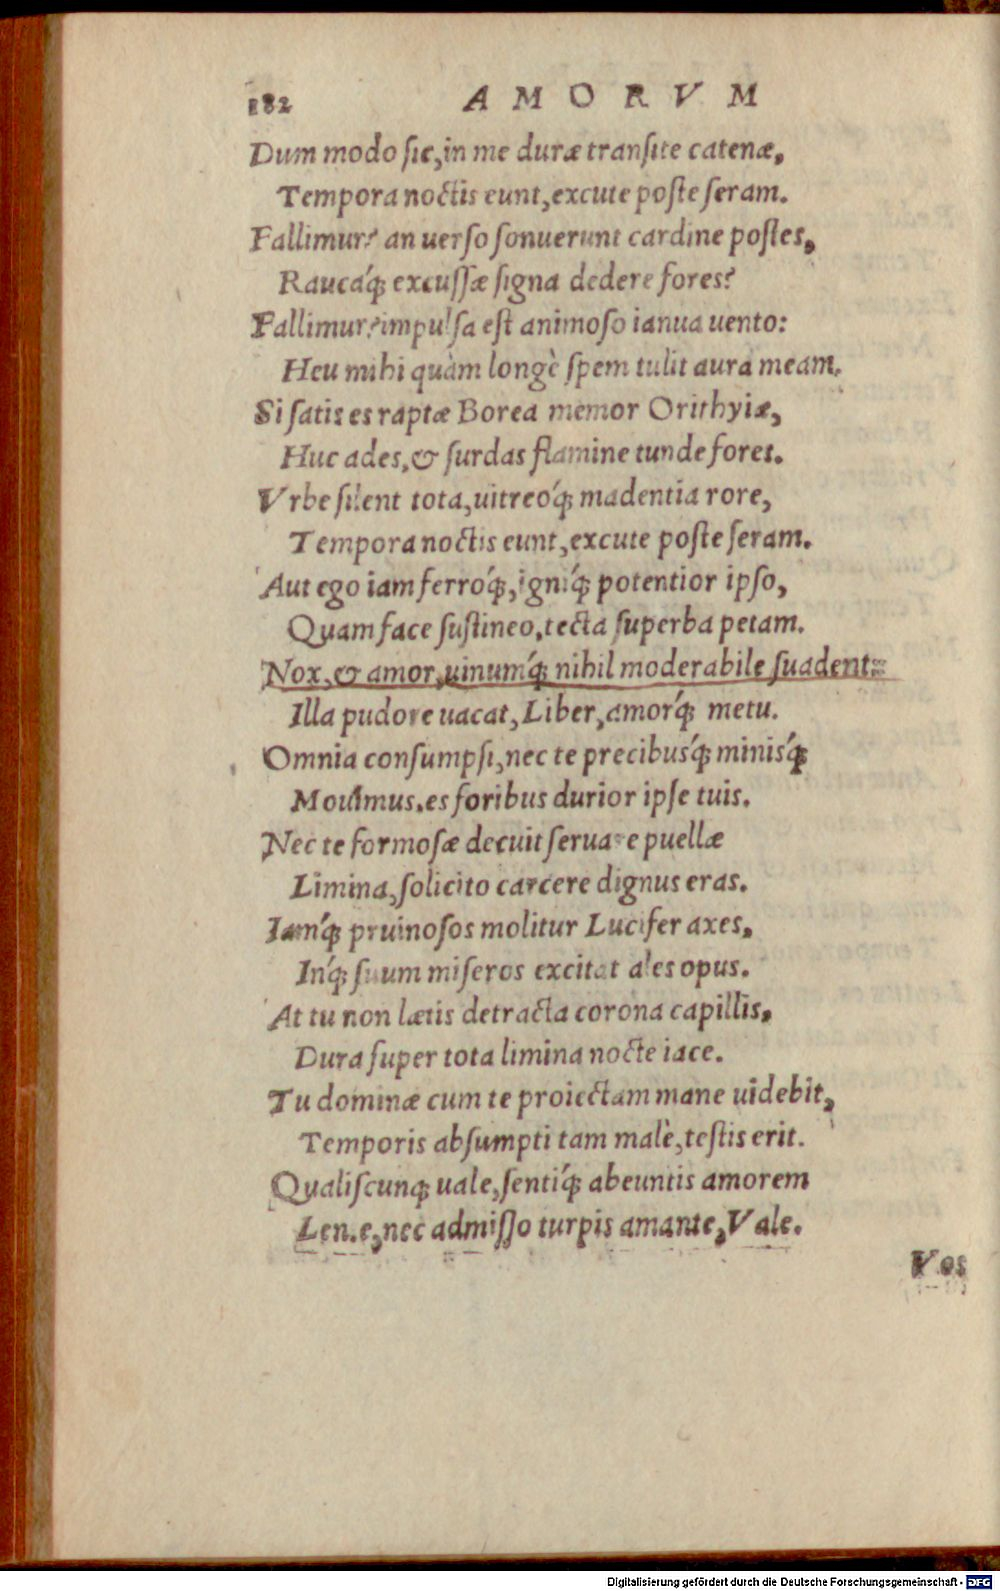 182 AMORVM
Dum modo sic, in me duræ transite catenæ,
Tempora noctis eunt, excute poste seram.
Fallimur? an uerso sonuerunt cardine postes,
Raucáq; excussæ signa dedere fores?
Fallimur? impulsa est animoso ianua uento:
Heu mihi quàm longè spem tulit aura meam.
Si satis es raptæ Borea memor Orithyiæ,
Huc ades, & surdas flamine tunde fores.
Vrbe silent tota, uitreoq́; madentia rore,
Tempora noctis eunt, excute poste seram.
Aut ego iam ferroq́;, igniq́; potentior ipso,
Quam face sustineo, tecta superba petam.
Nox, & amor, uinumq́; nihil moderabile suadent:
Illa pudore uacat, Liber, amorq́; metu.
Omnia consumpsi, nec te precibusq́; minisq́;
Mouimus. es foribus durior ipse tuis.
Nec te formosæ decuit seruare puellæ
Limina, solicito carcere dignus eras.
Iamq́; pruinosos molitur Lucifer axes,
Inq́; suum miseros excitat ales opus.
At tu non lætis detracta corona capillis,
Dura super tota limina nocte iace.
Tu dominæ cum te proiectam mane uidebit,
Temporis absumpti tam malè, testis erit.
Qualiscunq; uale, sentiq́; abeuntis amorem
Lente, nec admisso turpis amante, Vale.
Vos
Digitalisierung gefördert durch die Deutsche Forschungsgemeinschaft - DFG